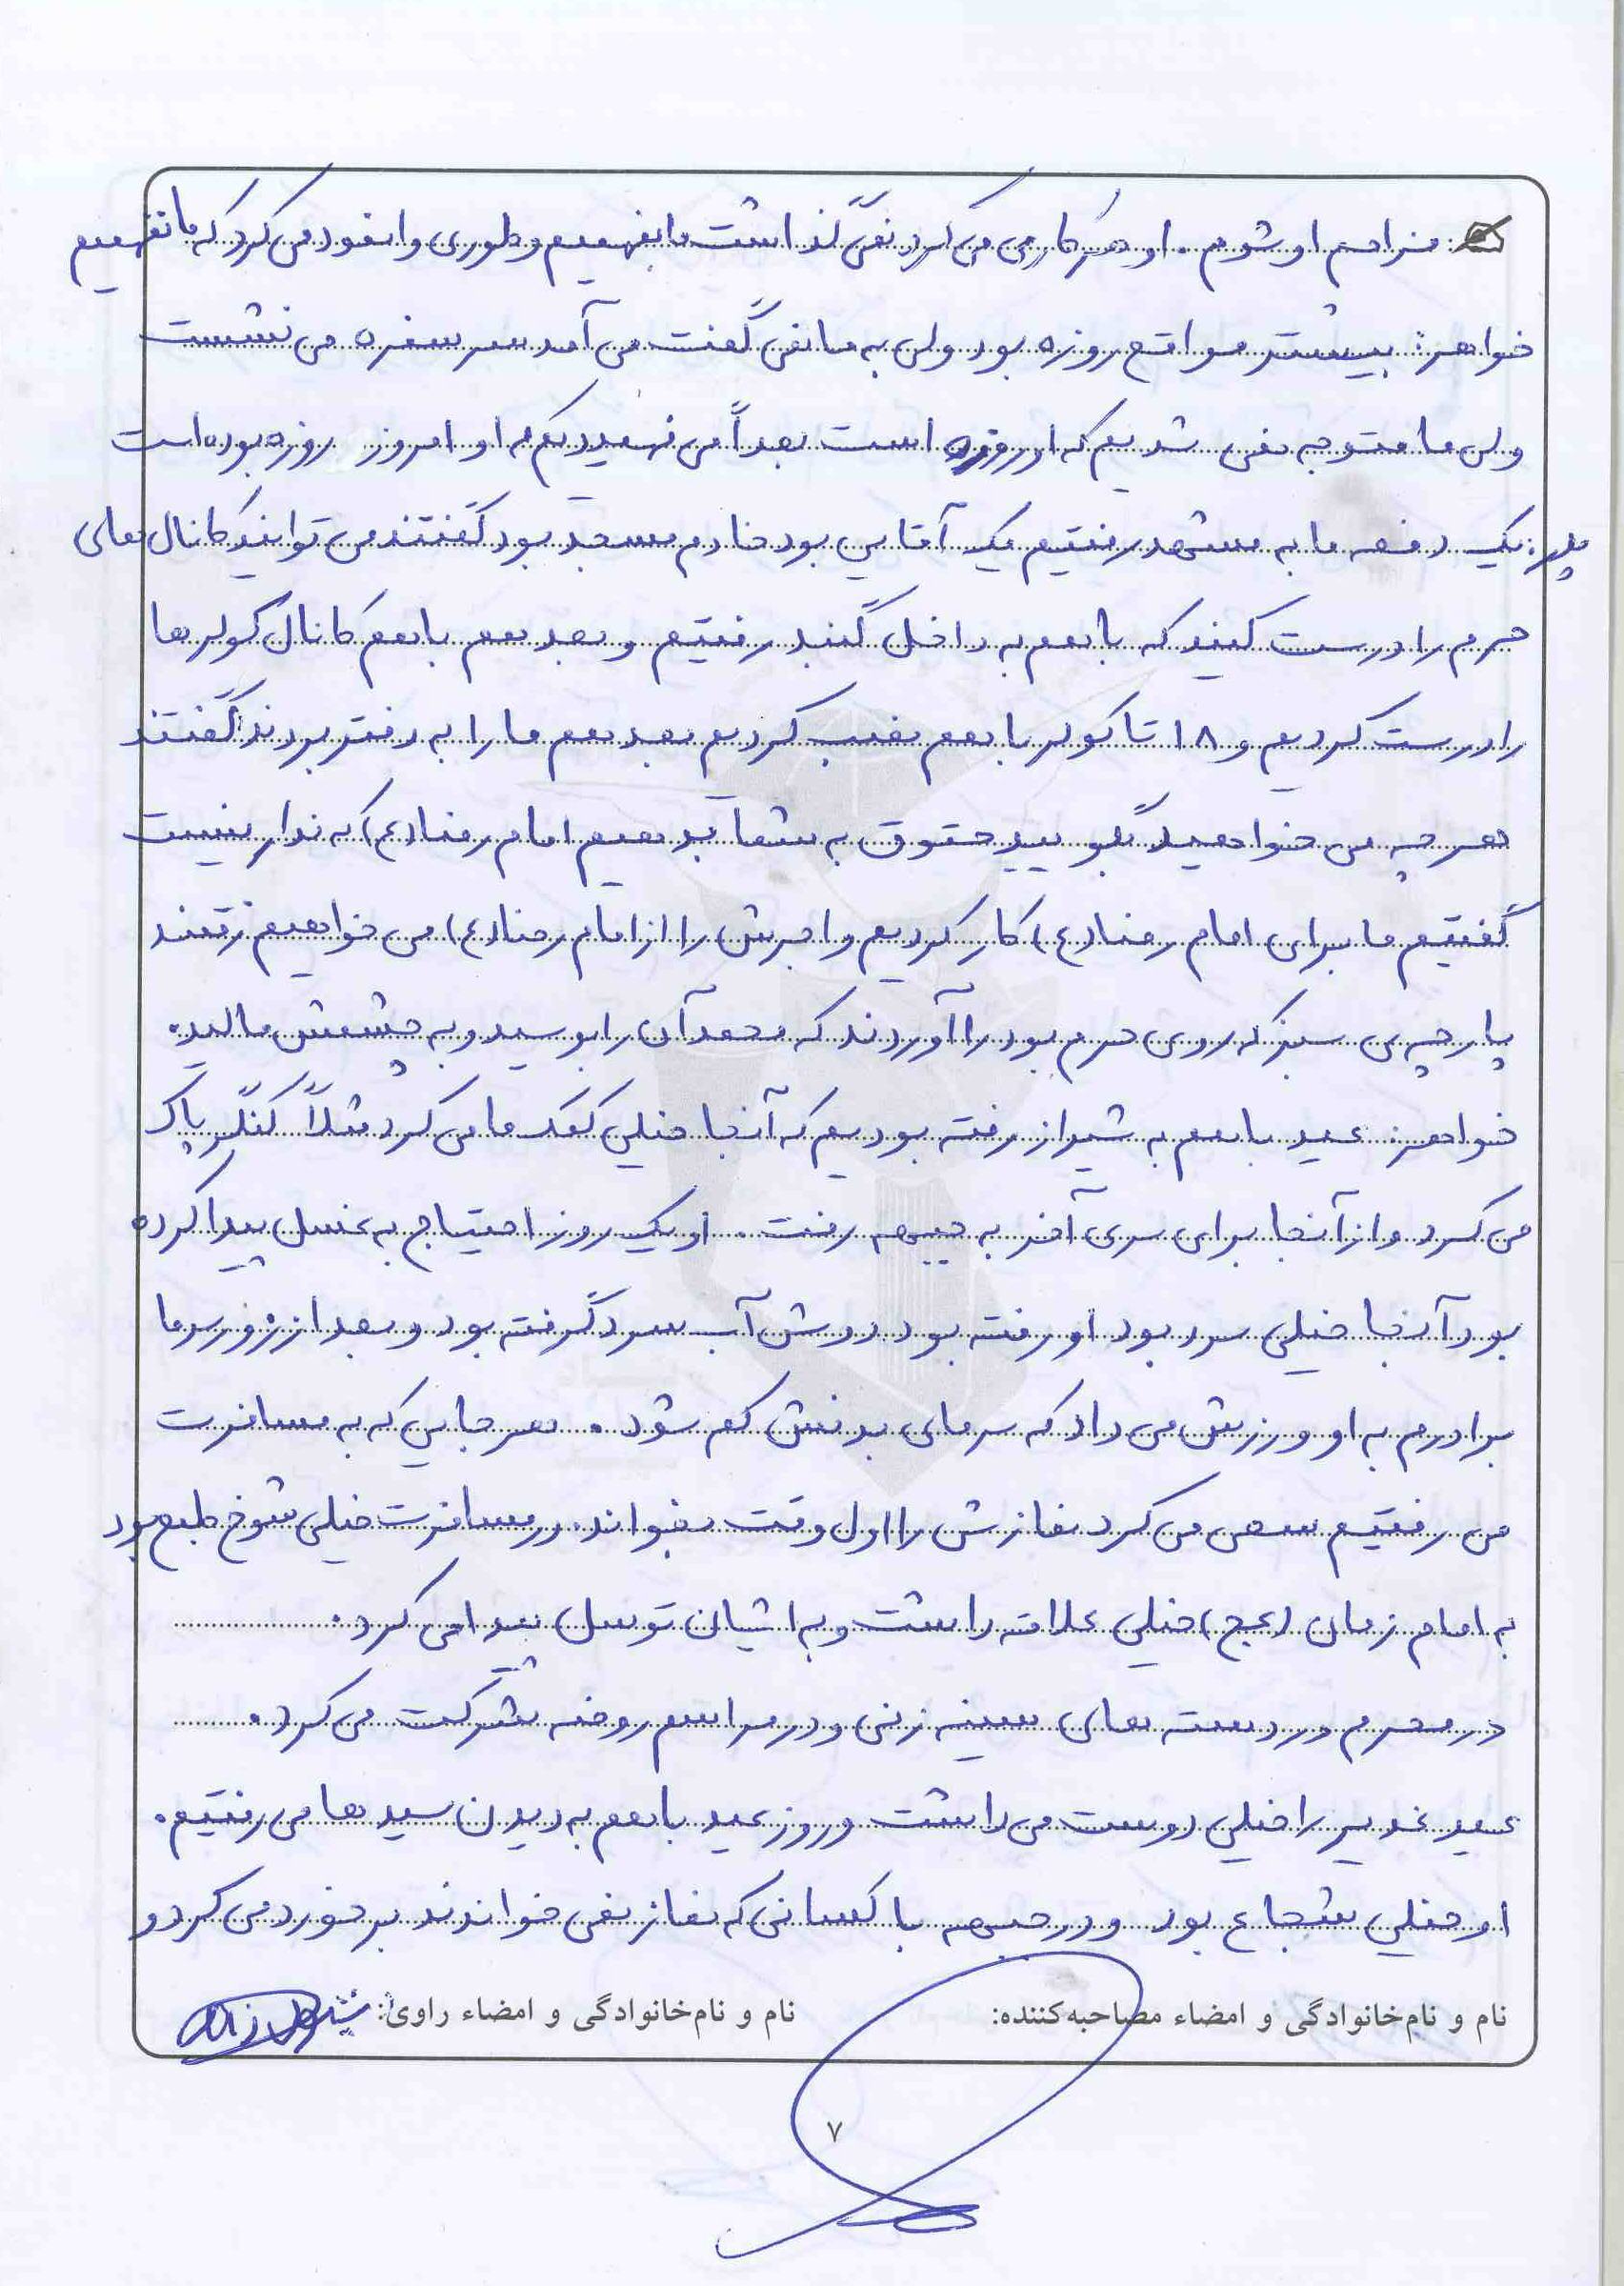 مزاحم او شوم. او هر کاری می کرد نمی گذاشت ما بفهمیم و طوری وانمود می کرد که ما نفهمیم
خواهر: بیشتر مواقع روزه بود ولی به ما نمی گفت می آمد سر سفره می نشست
ولی ما متوجه نمی شدیم که او روزه است بعداً می فهمیدیم که او امروز روزه بوده است
پدر: یک دفعه ما به مشهد رفتیم یک آقایی بود خادم مسجد بود گفتند می توانید کانال های
حرم را درست کنید که با هم به داخل گنبد رفتیم و بعد هم با هم کانال کولرها
را درست کردیم و ۱۸ تا کولر با هم نصب کردیم بعد هم ما را به دفتر بردند گفتند
هر چه می خواهید بگویید حقوق به شما بدهیم امام رضا (ع) که ندار نیست
گفتیم ما برای امام رضا (ع) کار کردیم و اجرش را از امام رضا (ع) می خواهیم رفتند
پارچه ی سبز که روی حرم بود را آوردند که محمد آن را بوسید و به چشمش مالید.
خواهر: عید با هم به شیراز رفته بودیم که آنجا خیلی کمک ما می کرد مثلاً کنگر پاک
می کرد و از آنجا برای سری آخر به جبهه رفت. او یک روز احتیاج به غسل پیدا کرده
بود آنجا خیلی سرد بود او رفته بود دوش آب سرد گرفته بود و بعد از زور سرما
برادرم به او ورزش می داد که سرمای بدنش کم شود. هر جایی که به مسافرت
می رفتیم سعی می کرد نمازش را اول وقت بخواند. در مسافرت خیلی شوخ طبع بود
به امام زمان (عج) خیلی علاقه داشت و به ایشان توسل پیدا می کرد.
در محرم در دسته های سینه زنی و در مراسم روضه شرکت می کرد.
عید غدیر را خیلی دوست می داشت و روز عید با هم به دیدن سید ها می رفتیم.
او خیلی شجاع بود و در جبهه با کسانی که نماز نمی خواندند برخورد می کرد و
نام و نام‌خانوادگی و امضاء مصاحبه‌کننده: نام و نام‌خانوادگی و امضاء راوی:
۷